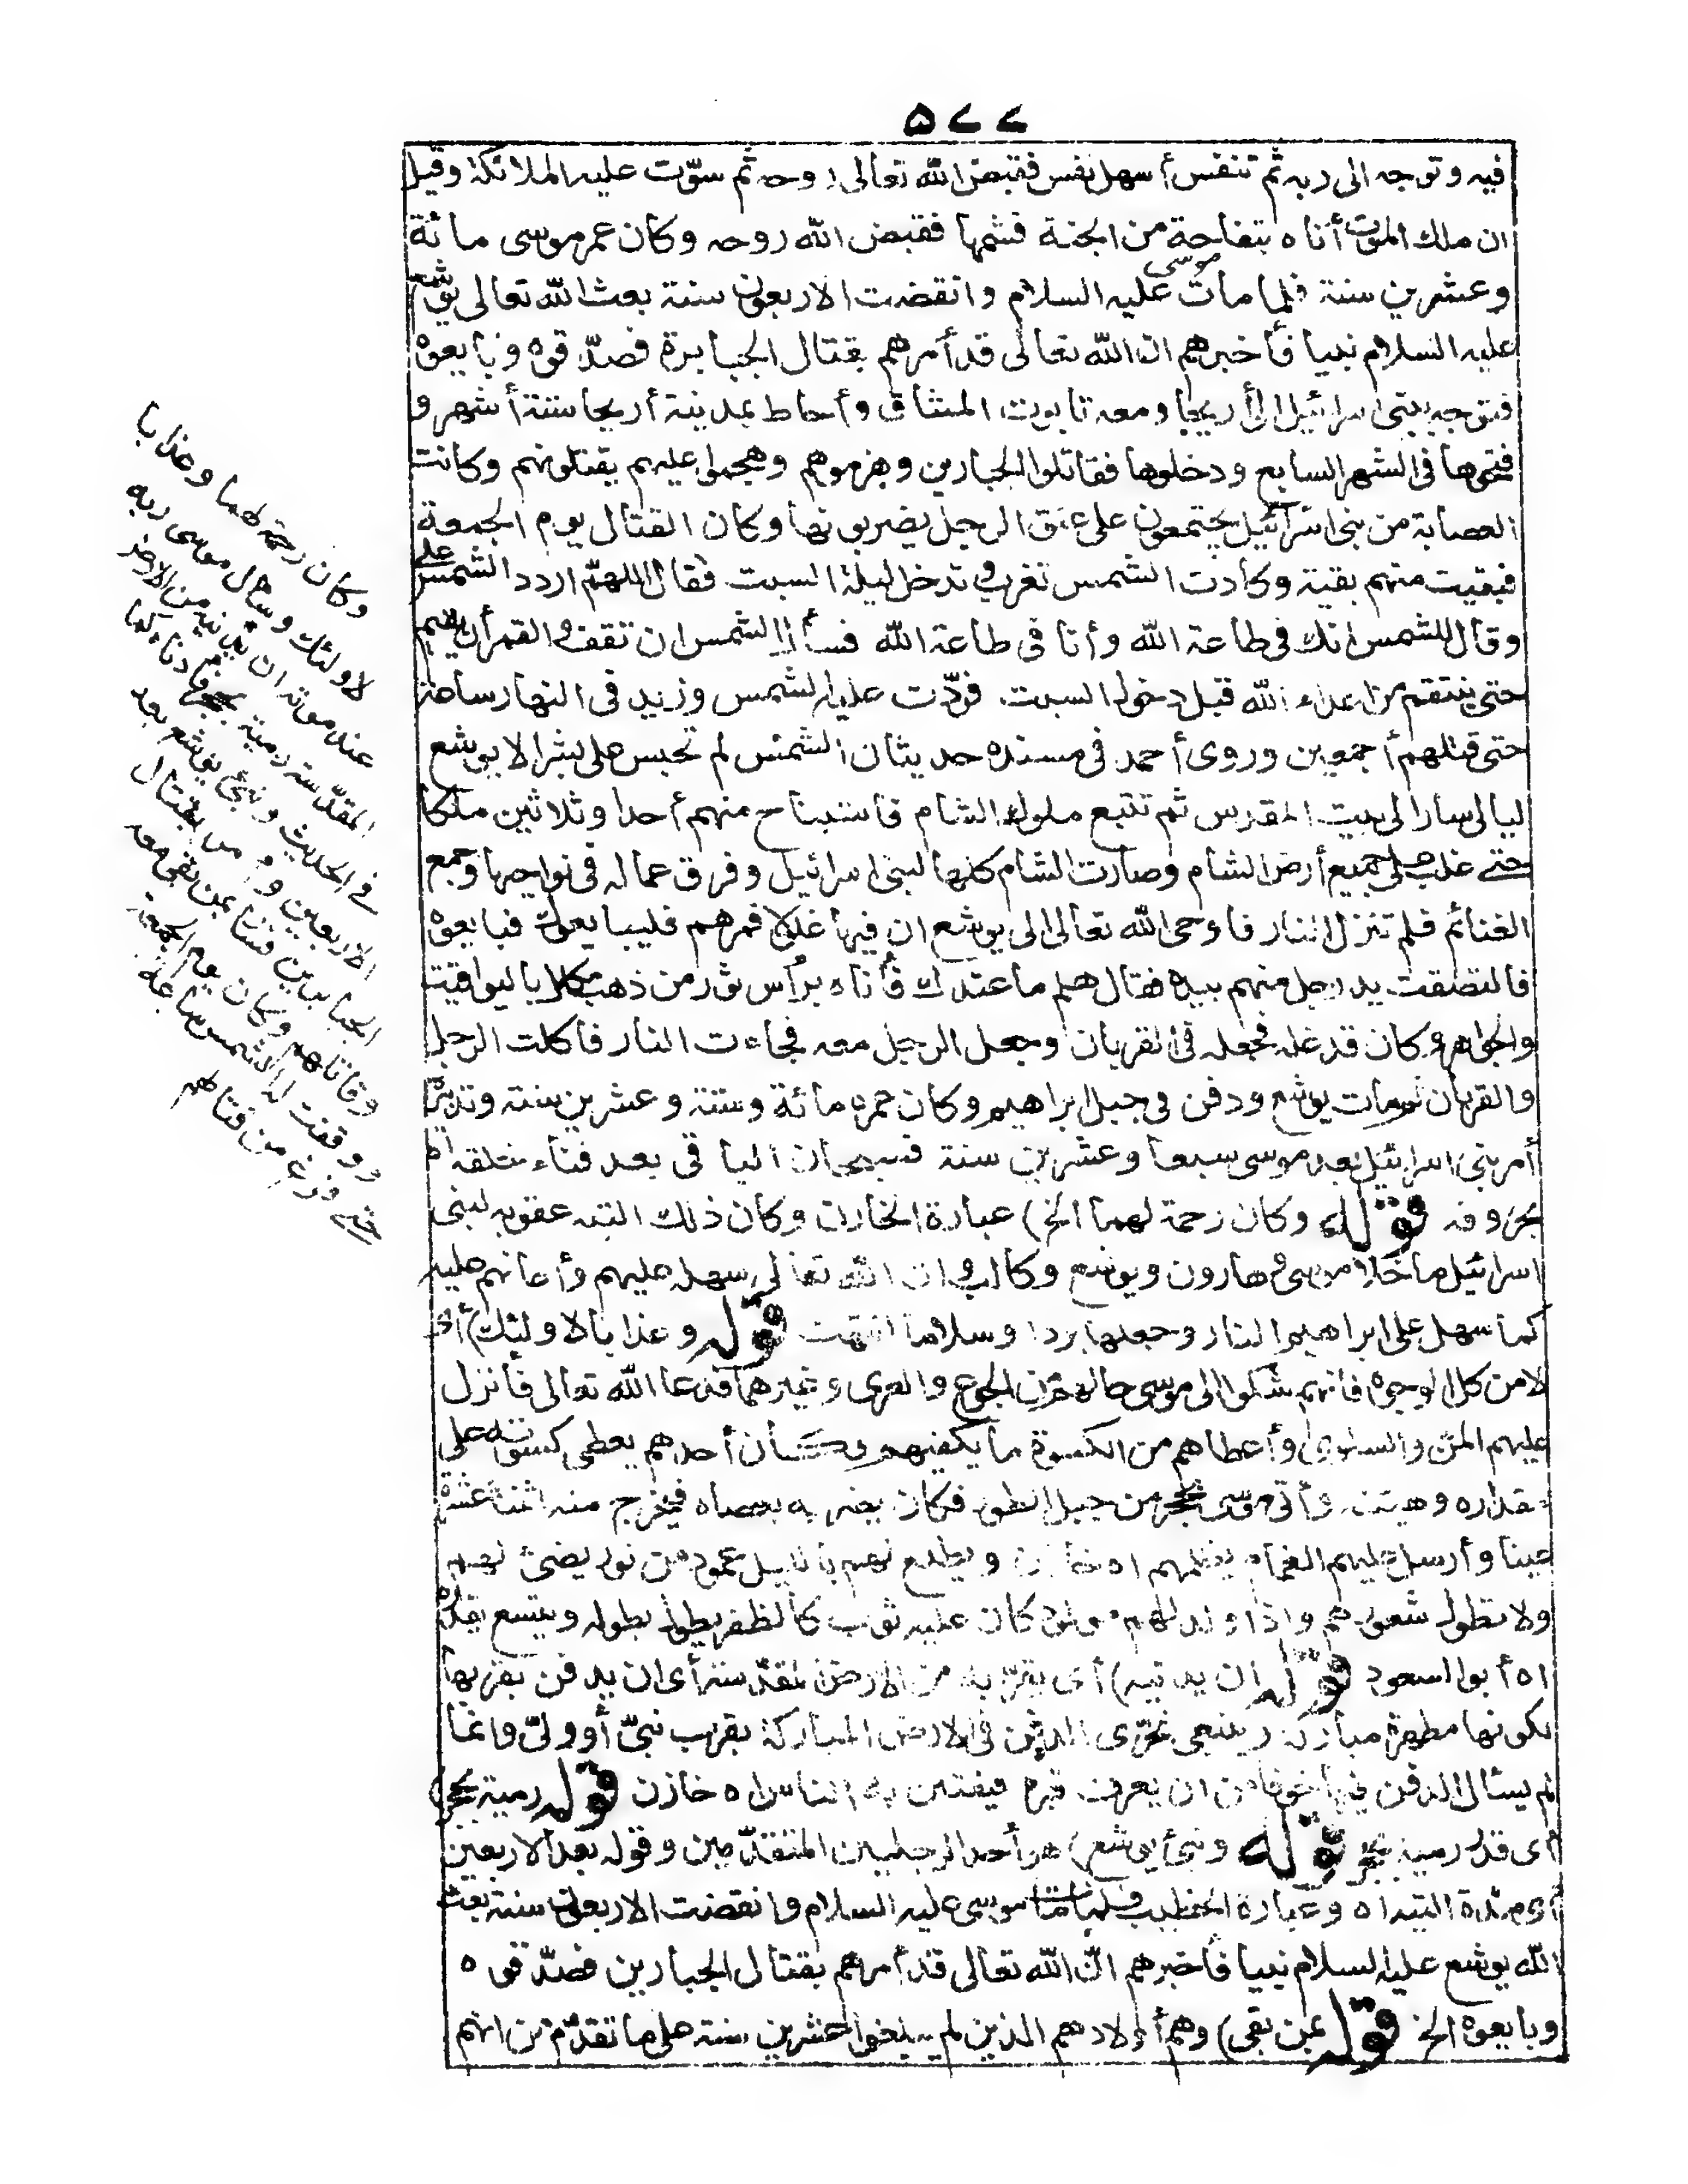 ٥٧٧
فيه وتوجه الى ربه ثم تنفس أسهل نفس فقبض الله تعالى روحه ثم سوّت عليه الملائكة وقيل
ان ملك الموت أتاه بتفاحة من الجنة فشمها فقبض الله روحه وكان عمر موسى مائة
وعشرين سنة فلما مات موسى عليه السلام وانقضت الاربعون سنة بعث الله تعالى يوشع
عليه السلام نبيا فأخبرهم ان الله تعالى قد أمرهم بقتال الجبابرة فصدّقوه وبايعوه
فتوجه ببنى اسرائيل الى أريحا ومعه تابوت الميثاق وأحاط بمدينة أريحا ستة أشهر و
فتحوها فى الشهر السابع ودخلوها فقاتلوا الجبارين وهزموهم وهجموا عليهم يقتلونهم وكانت
العصابة من بنى اسرائيل يجتمعون على عنق الرجل يضربونها وكان القتال يوم الجمعة
فبقيت منهم بقية وكادت الشمس تغرب وتدخل ليلة السبت فقال اللهمّ اردد الشمس علىّ
وقال للشمس انك فى طاعة الله وأنا فى طاعة الله فسأل الشمس ان تقف والقمر أن يقيم
حتى ينتقم من اعداء الله قبل دخول السبت فردّت عليه الشمس وزيد فى النهار ساعة
حتى قتلهم أجمعين وروى أحمد فى مسنده حديث ان الشمس لم تحبس على بشر الا يوشع
ليالى سار الى بيت المقدس ثم تتبع ملوك الشام فاستباح منهم أحدا وثلاثين ملكا
حتى غلب على جميع أرض الشام وصارت الشام كلها لبنى اسرائيل وفرق عماله فى نواحيها وجمع
الغنائم فلم تنزل النار فأوحى الله تعالى الى يوشع ان فيها غلولا فمرهم فليبايعوك فبايعوه
فالتصقت يد رجل منهم بيده فقال هلم ما عندك فأتاه برأس ثور من ذهب مكلل باليواقيت
والجواهر وكان قد غله فجعله فى القربان وجعل الرجل معه فجاءت النار فأكلت الرجل
والقربان ثم مات يوشع ودفن فى جبل ابراهيم وكان عمره مائة وستة وعشرين سنة وتدبيره
أمر بنى اسرائيل بعد موسى سبعا وعشرين سنة فسبحان الباقى بعد فناء خلقه اه
بحروفه قوله وكان رحمة لهما الخ) عبارة الخازن وكان ذلك التيه عقوبة لبنى
اسرائيل ما خلا موسى وهارون ويوشع وكالب وان الله تعالى سهله عليهم وأعانهم عليه
كما سهل على ابراهيم النار وجعلها بردا وسلاما انتهت قوله وعذابا لاولئك) أى
لا من كل الوجوه فانهم شكوا الى موسى حالهم من الجوع والعرى وغيرهما فدعا الله تعالى فأنزل
عليهم المنّ والسلوى وأعطاهم من الكسوة ما يكفيهم وكان أحدهم يعطى كسوته على
مقداره وهيئته وأتى موسى بحجر من جبل الطور فكان يضربه بعصاه فيخرج منه اثنتا عشرة
عينا وأرسل عليهم الغمام يظلهم اه خازن ويطلع لهم بالليل عمود من نور يضئ لهم
ولا تطول شعورهم واذا ولد لهم مولود كان عليه ثوب كالظفر يطول بطوله ويتسع بقدره
اه أبو السعود قوله ان يدنيه) أى يقرّبه من الارض المقدّسة أى ان يدفن بقربها
لكونها مطهرة مباركة وينبغى تحرّى الدفن فى الارض المباركة بقرب نبىّ أو ولىّ وانما
لم يسأل الدفن فيها خوفا من ان يعرف قبره فيفتتن به الناس اه خازن قوله رمية بحجر)
أى قدر رمية بحجر قوله ونبئ يوشع) هو أحد الرجلين المتقدّمين وقوله بعد الاربعين
أى مدّة التيه اه وعبارة الخطيب فلما مات موسى عليه السلام وانقضت الاربعون سنة بعث
الله يوشع عليه السلام نبيا فأخبرهم انّ الله تعالى قد أمرهم بقتال الجبارين فصدّقوه
وبايعوه الخ قوله بمن بقى) وهم أولادهم الذين لم يبلغوا عشرين سنة على ما تقدّم من انهم
وكان رحمة لهما وعذابا
لاولئك وسأل موسى ربه
عند موته ان يدنيه من الارض
المقدّسة رمية بحجر فأدناه كما
فى الحديث ونبئ يوشع بعد
الاربعين وأمر بقتال
الجبارين فسار بمن بقى معه
وقاتلهم وكان يوم الجمعة
ووقفت له الشمس ساعة
حتى فرغ من قتالهم